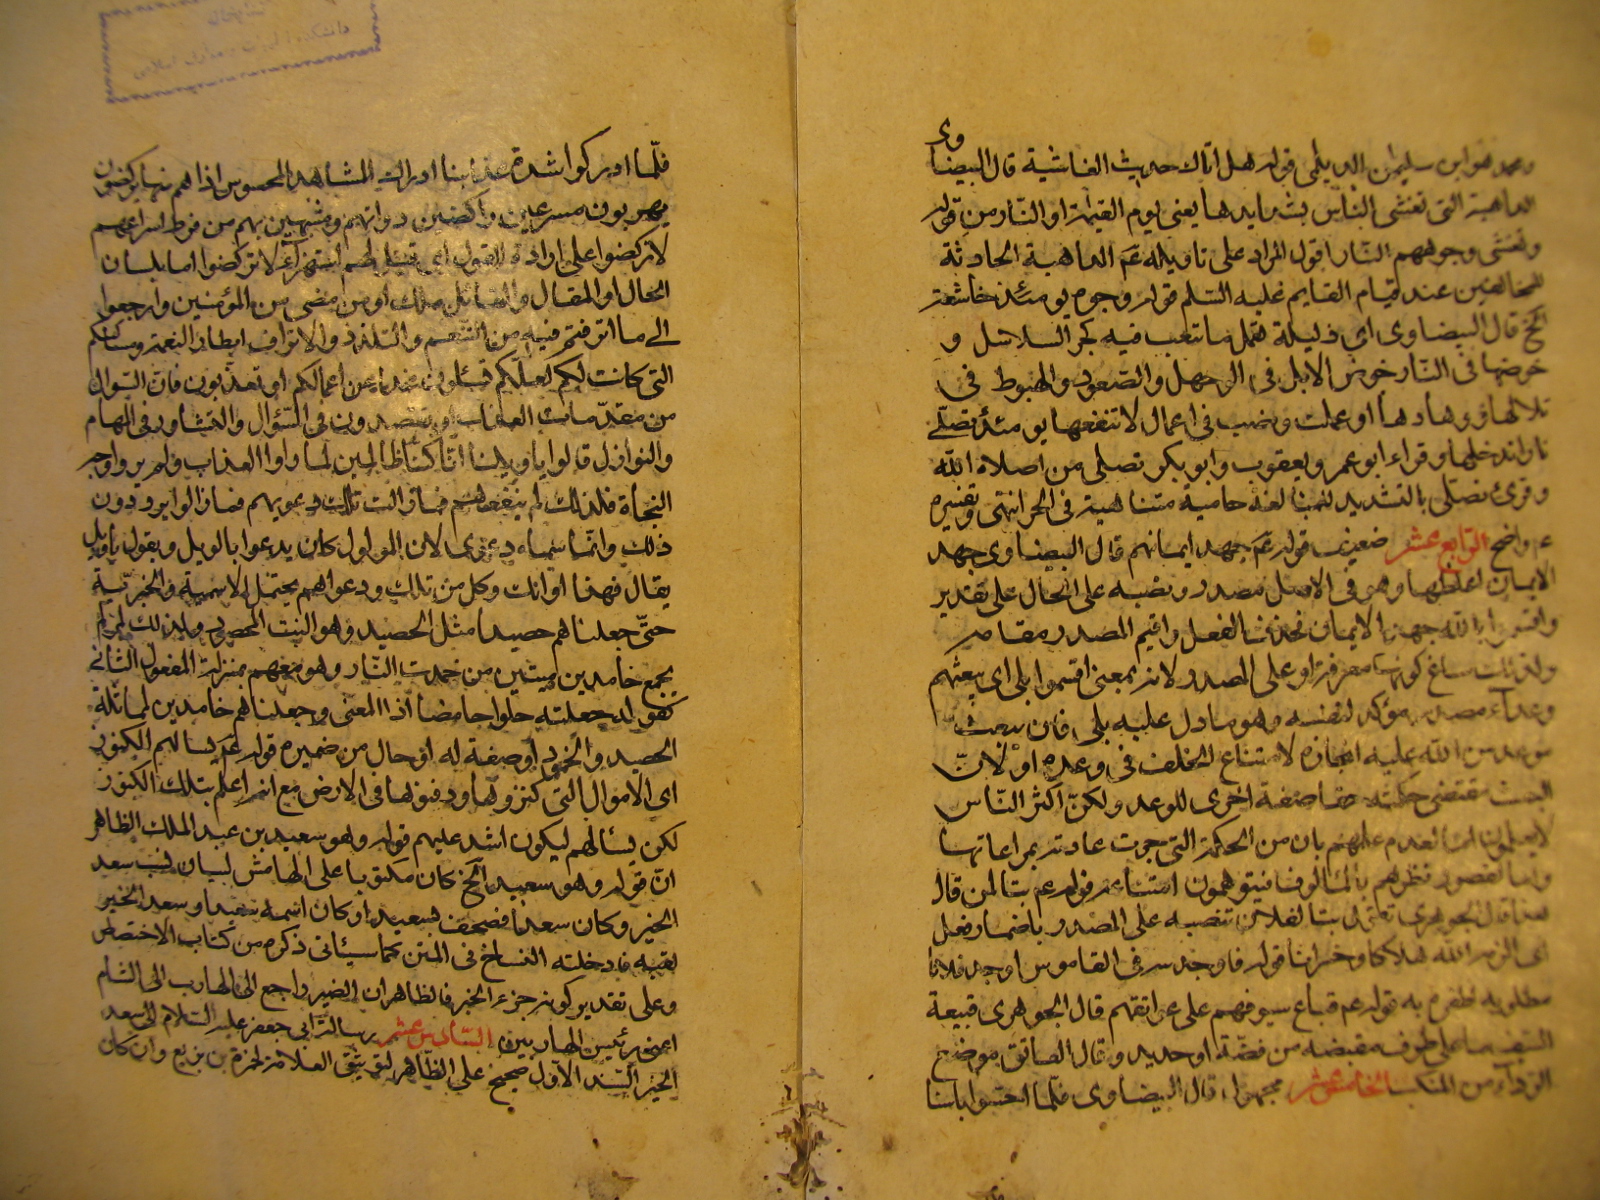 ومحمد هو ابن سليمن الديلمى قوله هل اتاك حديث الغاشية قال البيضاوى
الداهية التى تغشى الناس بشدايدها يعنى يوم القيمة او النار من قوله
وتغشى وجوههم النار اقول المراد على تاويله عم الداهية الحادثة
للمخالفين عند قيام القايم عليه السلم قوله وجوه يومئذ خاشعة
الخ قال البيضاوى اى ذليلة تعمل ما تتعب فيه كجر السلاسل و
خوضها فى النار خوض الابل فى الوحل والصعود والهبوط فى
تلالها ووهادها او عملت ونصبت فى اعمال لا تنفعها يومئذ تصلى
نارا تدخلها وقراء ابو عمر ويعقوب وابو بكر تصلى من اصلاه الله
وقرئ تصلى بالتشديد للمبالغة حامية متناهية فى الحر انتهى وتفسيره
عم واضح الرابع عشر ضعيف قوله عم جهد ايمانهم قال البيضاوى جهد
الايمان اغلظها وهو فى الاصل مصدر ونصبه على الحال على تقدير
واقسموا بالله جهد الايمان فحذف الفعل واقيم المصدر مقامه
ولذلك ساغ كونها معرفة او على المصدر لانه بمعنى اقسموا بلى اى يبعثهم
وعدا مصدر مؤكد لنفسه وهو ما دل عليه بلى فان يبعث
موعد من الله عليه انجازه لامتناع الخلف فى وعده او لانّ
البعث مقتضى حكمته حقا صفة اخرى للوعد ولكنّ اكثر الناس
لا يعلمون انما لعدم علمهم بان من الحكمة التى جرت عادته بمراعاتها
واما لقصور نظرهم بالمالوف فيتوهمون امتناعه قوله عم تبا لمن قال
هذا قال الجوهرى تقول تبا لفلان تنصبه على المصدر باضمار فعل
اى الزمه الله هلاكا وخسرانا قوله فاوجد سر فى القاموس اوجد فلانا
مطلوبه اظفره به قوله عم قباع سيوفهم على عواتقهم قال الجوهرى قبيعة
السيف ما على طرف مقبضه من فضة او حديد وقال العاتق موضع
الرداء من المنكب الخامس عشر مجهول قال البيضاوى فلما احسوا باسنا
فلّما ادركوا شدة عذابنا ادراك المشاهد المحسوس اذا هم منها يركضون
يهربون مسرعين راكضين دوابهم ومشبهين بهم من فرط اسراعهم
لا تركضوا على ارادة القول اى قيل لهم استهزاء لا تركضوا اما بلسان
الحال او المقال والقائل ملك او من مضى من المؤمنين وارجعوا
الى ما اترفتم فيه من التنعم والتلذذ والاتراف ابطار النعمة ومساكنكم
التى كانت لكم لعلكم تسئلون غدا عن اعمالكم او تعذبون فان السؤال
من مقدمات العذاب او تقصدون فى السؤال والتشاور فى المهام
والنوازل قالوا يا ويلنا انا كنا ظالمين لما راوا العذاب ولم يروا وجه
النجاة فلذلك لم ينفعهم فما زالت تلك دعويهم فما زالوا يرددون
ذلك وانما سماه دعوى لان المولول كان يدعوا بالويل ويقول يا ويل
يقال فهذا اوانك وكل من تلك ودعواهم يحتمل الاسمية والخبرية
حتى جعلناهم حصيدا مثل الحصيد وهو النبت المحصود ولذلك لم
يجمع خامدين ميتين من خمدت النار وهو معهم بمنزلة المفعول الثانى
كقولك جعلته حلوا حامضا اذ المعنى وجعلناهم خامدين لمماثلة
الحصيد والخمود او صفة له او حال من ضميره قوله عم يسالهم الكنوز
اى الاموال التى كنزوها ودفنوها فى الارض مع انه اعلم بتلك الكنوز
لكن يسالهم ليكون اشد عليهم قوله وهو سعيد بن عبد الملك الظاهر
انّ قوله وهو سعيد الخ كان مكتوبا على الهامش لبيان نسب سعد
الخير وكان سعدا فصحف بسعيد او كان اسمه سعيدا وسعد الخير
لقبه فادخلته النساخ فى المتن كما سيئاتى ذكره من كتاب الاختصاص
وعلى تقدير كونه جزء الخبر فالظاهر ان الضمير راجع الى الهارب الى الشام
اعنى رئيس الهاربين السادس عشر رسالة ابى جعفر عليه السلام الى سعد
الخير السند الاول صحيح على الظاهر لتوثيق العلامة لحمزة بن بزيع وان كان